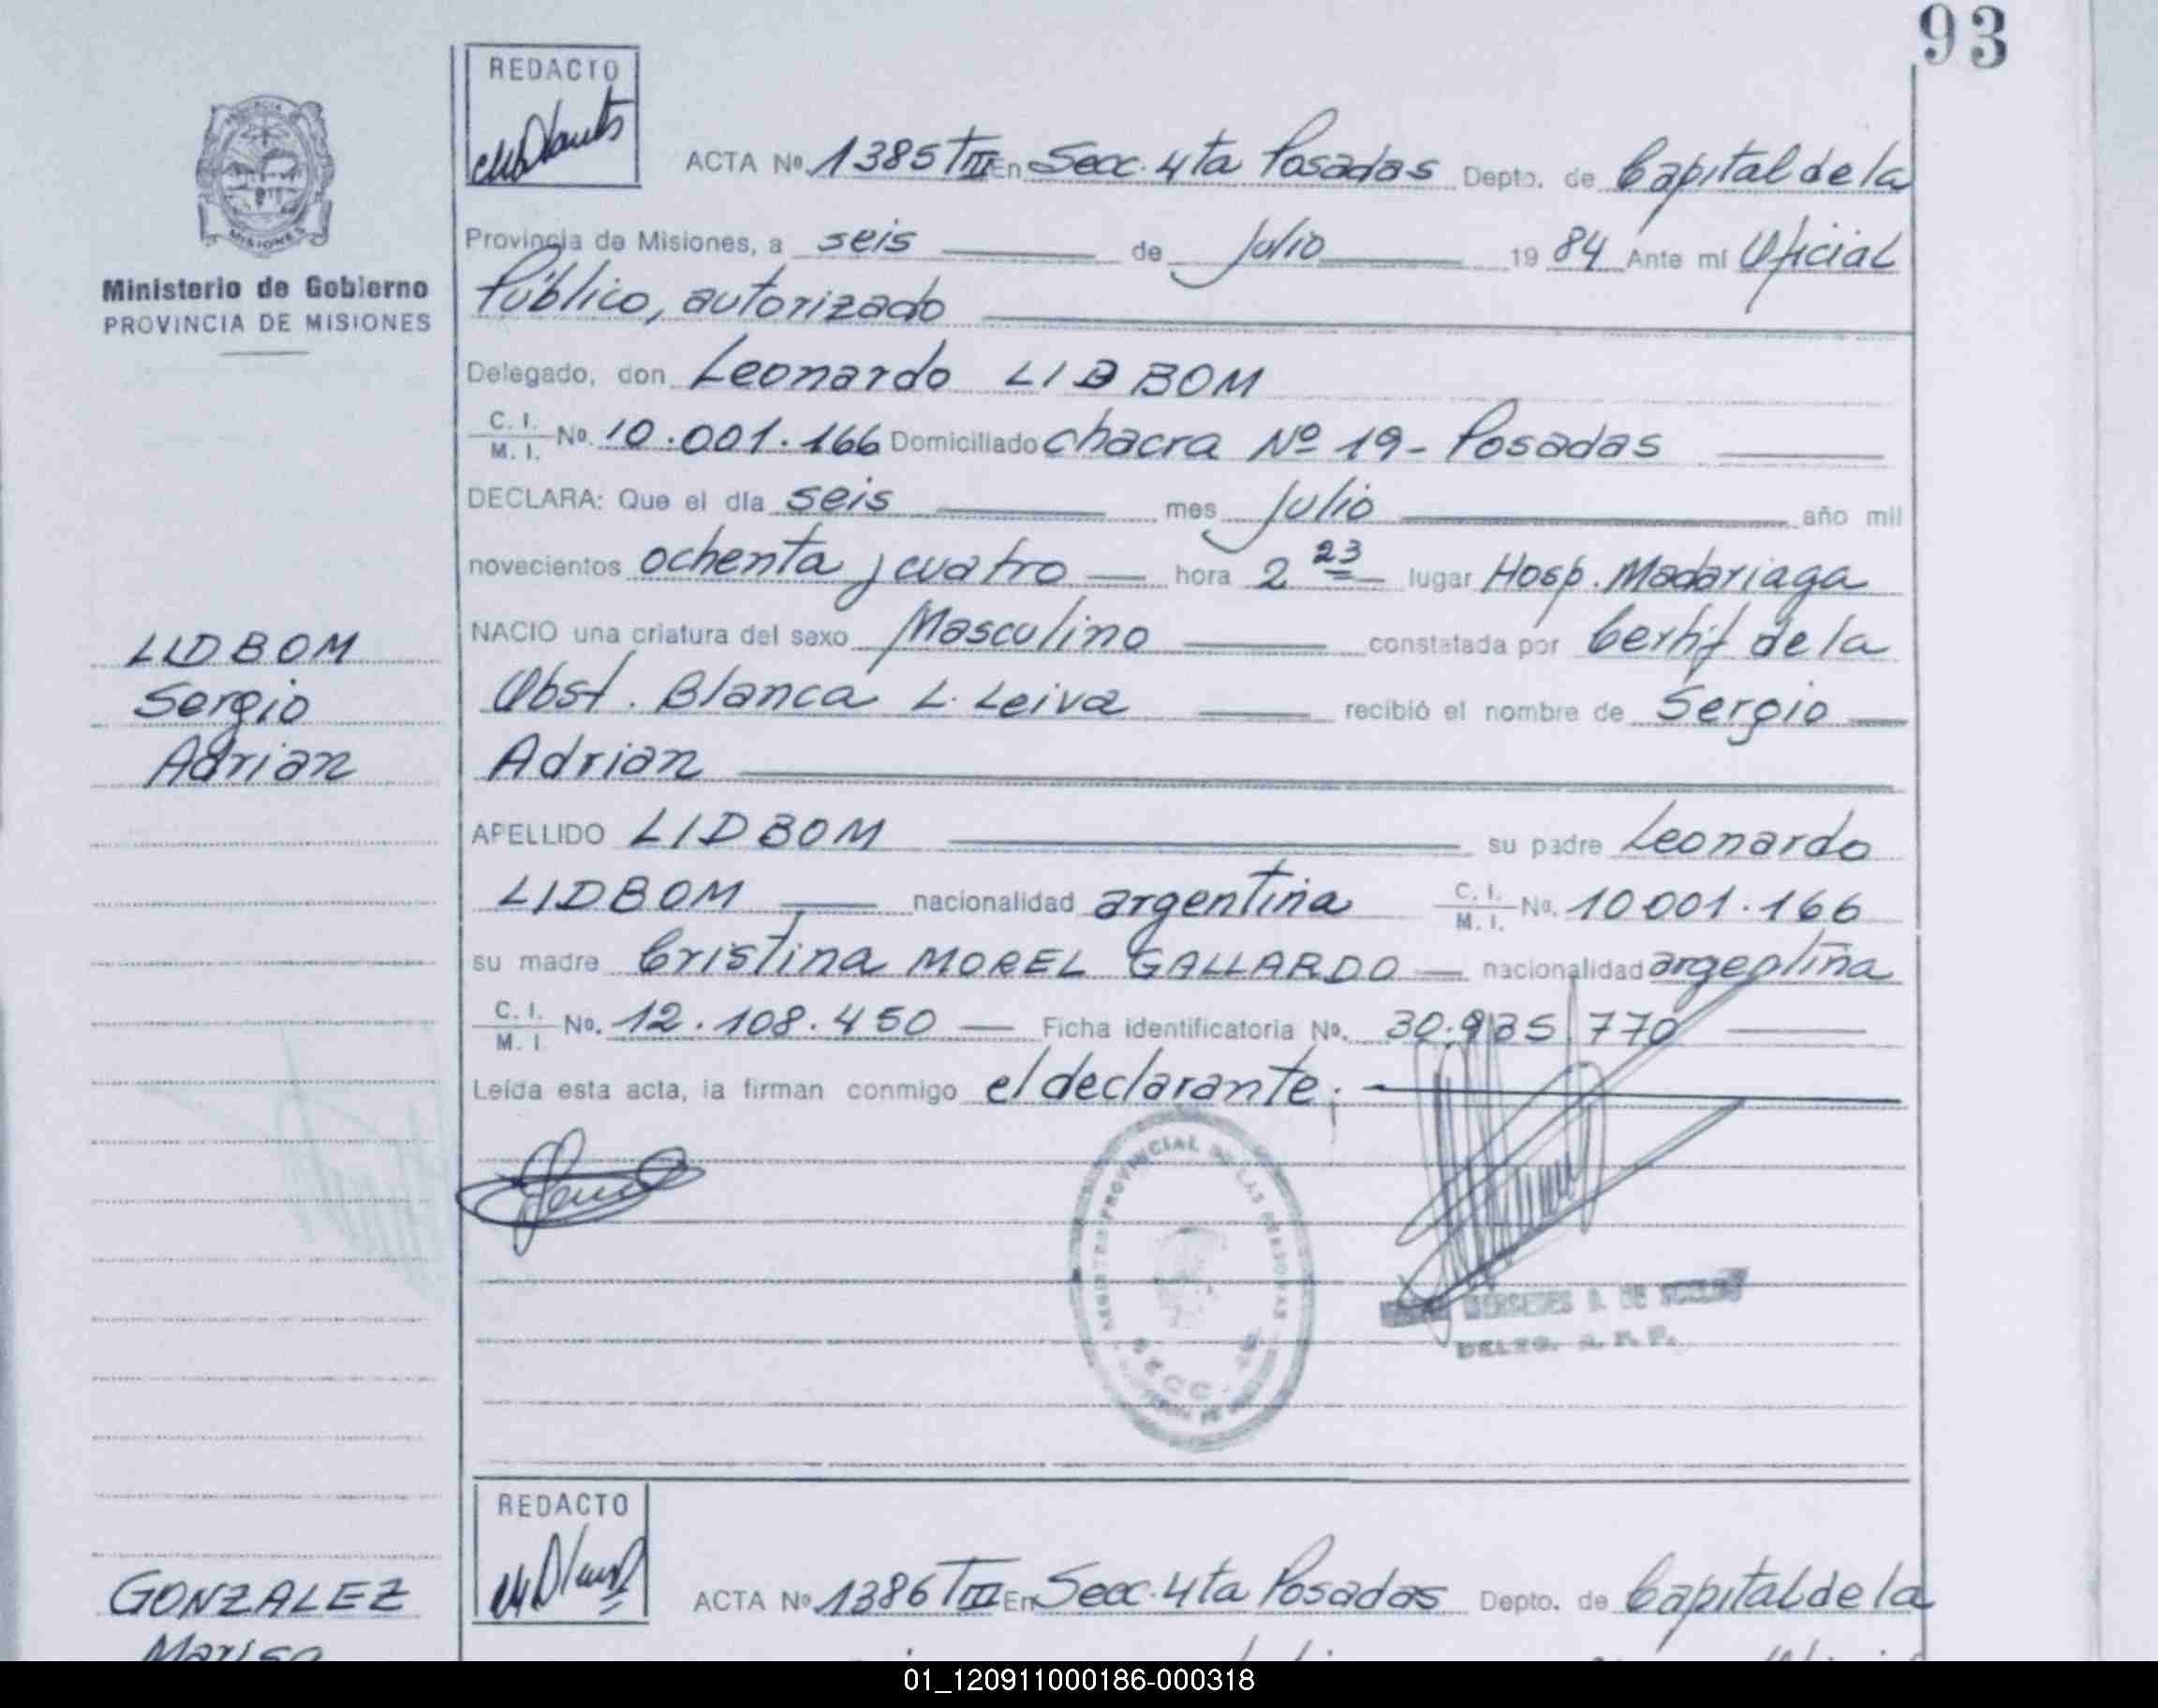 93
REDACTO
ACTA Nº 1385 TIII En Secc. 4ta Posadas Depto. de Capital de la
MISIONES
Ministerio de Gobierno
PROVINCIA DE MISIONES
Provincia de Misiones, a seis de Julio 1984 Ante mi Oficial
Público, autorizado
Delegado, don Leonardo LIDBOM
C. I. M. I. Nº. 10.001.166 Domiciliado chacra Nº 19- Posadas
DECLARA: Que el día seis mes Julio año mil
novecientos ochenta y cuatro hora 2 23 lugar Hosp. Madariaga
NACIO una criatura del sexo Masculino constatada por Certif de la
Obst. Blanca L. Leiva recibió el nombre de Sergio
Adrian
LIDBOM
Sergio
Adrian
APELLIDO LIDBOM su padre Leonardo
LIDBOM nacionalidad argentina C. I. M. I. Nº. 10.001.166
su madre Cristina MOREL GALLARDO nacionalidad argentina
C. I. M. I Nº. 12.108.450 Ficha identificatoria Nº. 30.935.770
Leída esta acta, la firman conmigo el declarante.
REGISTRO PROVINCIAL DE LAS PERSONAS
SECC.
MERCEDES DE
DELEG. R. P. P.
REDACTO
GONZALEZ
ACTA Nº 1386 TIII En Secc. 4ta Posadas Depto. de Capital de la
01_120911000186-000318